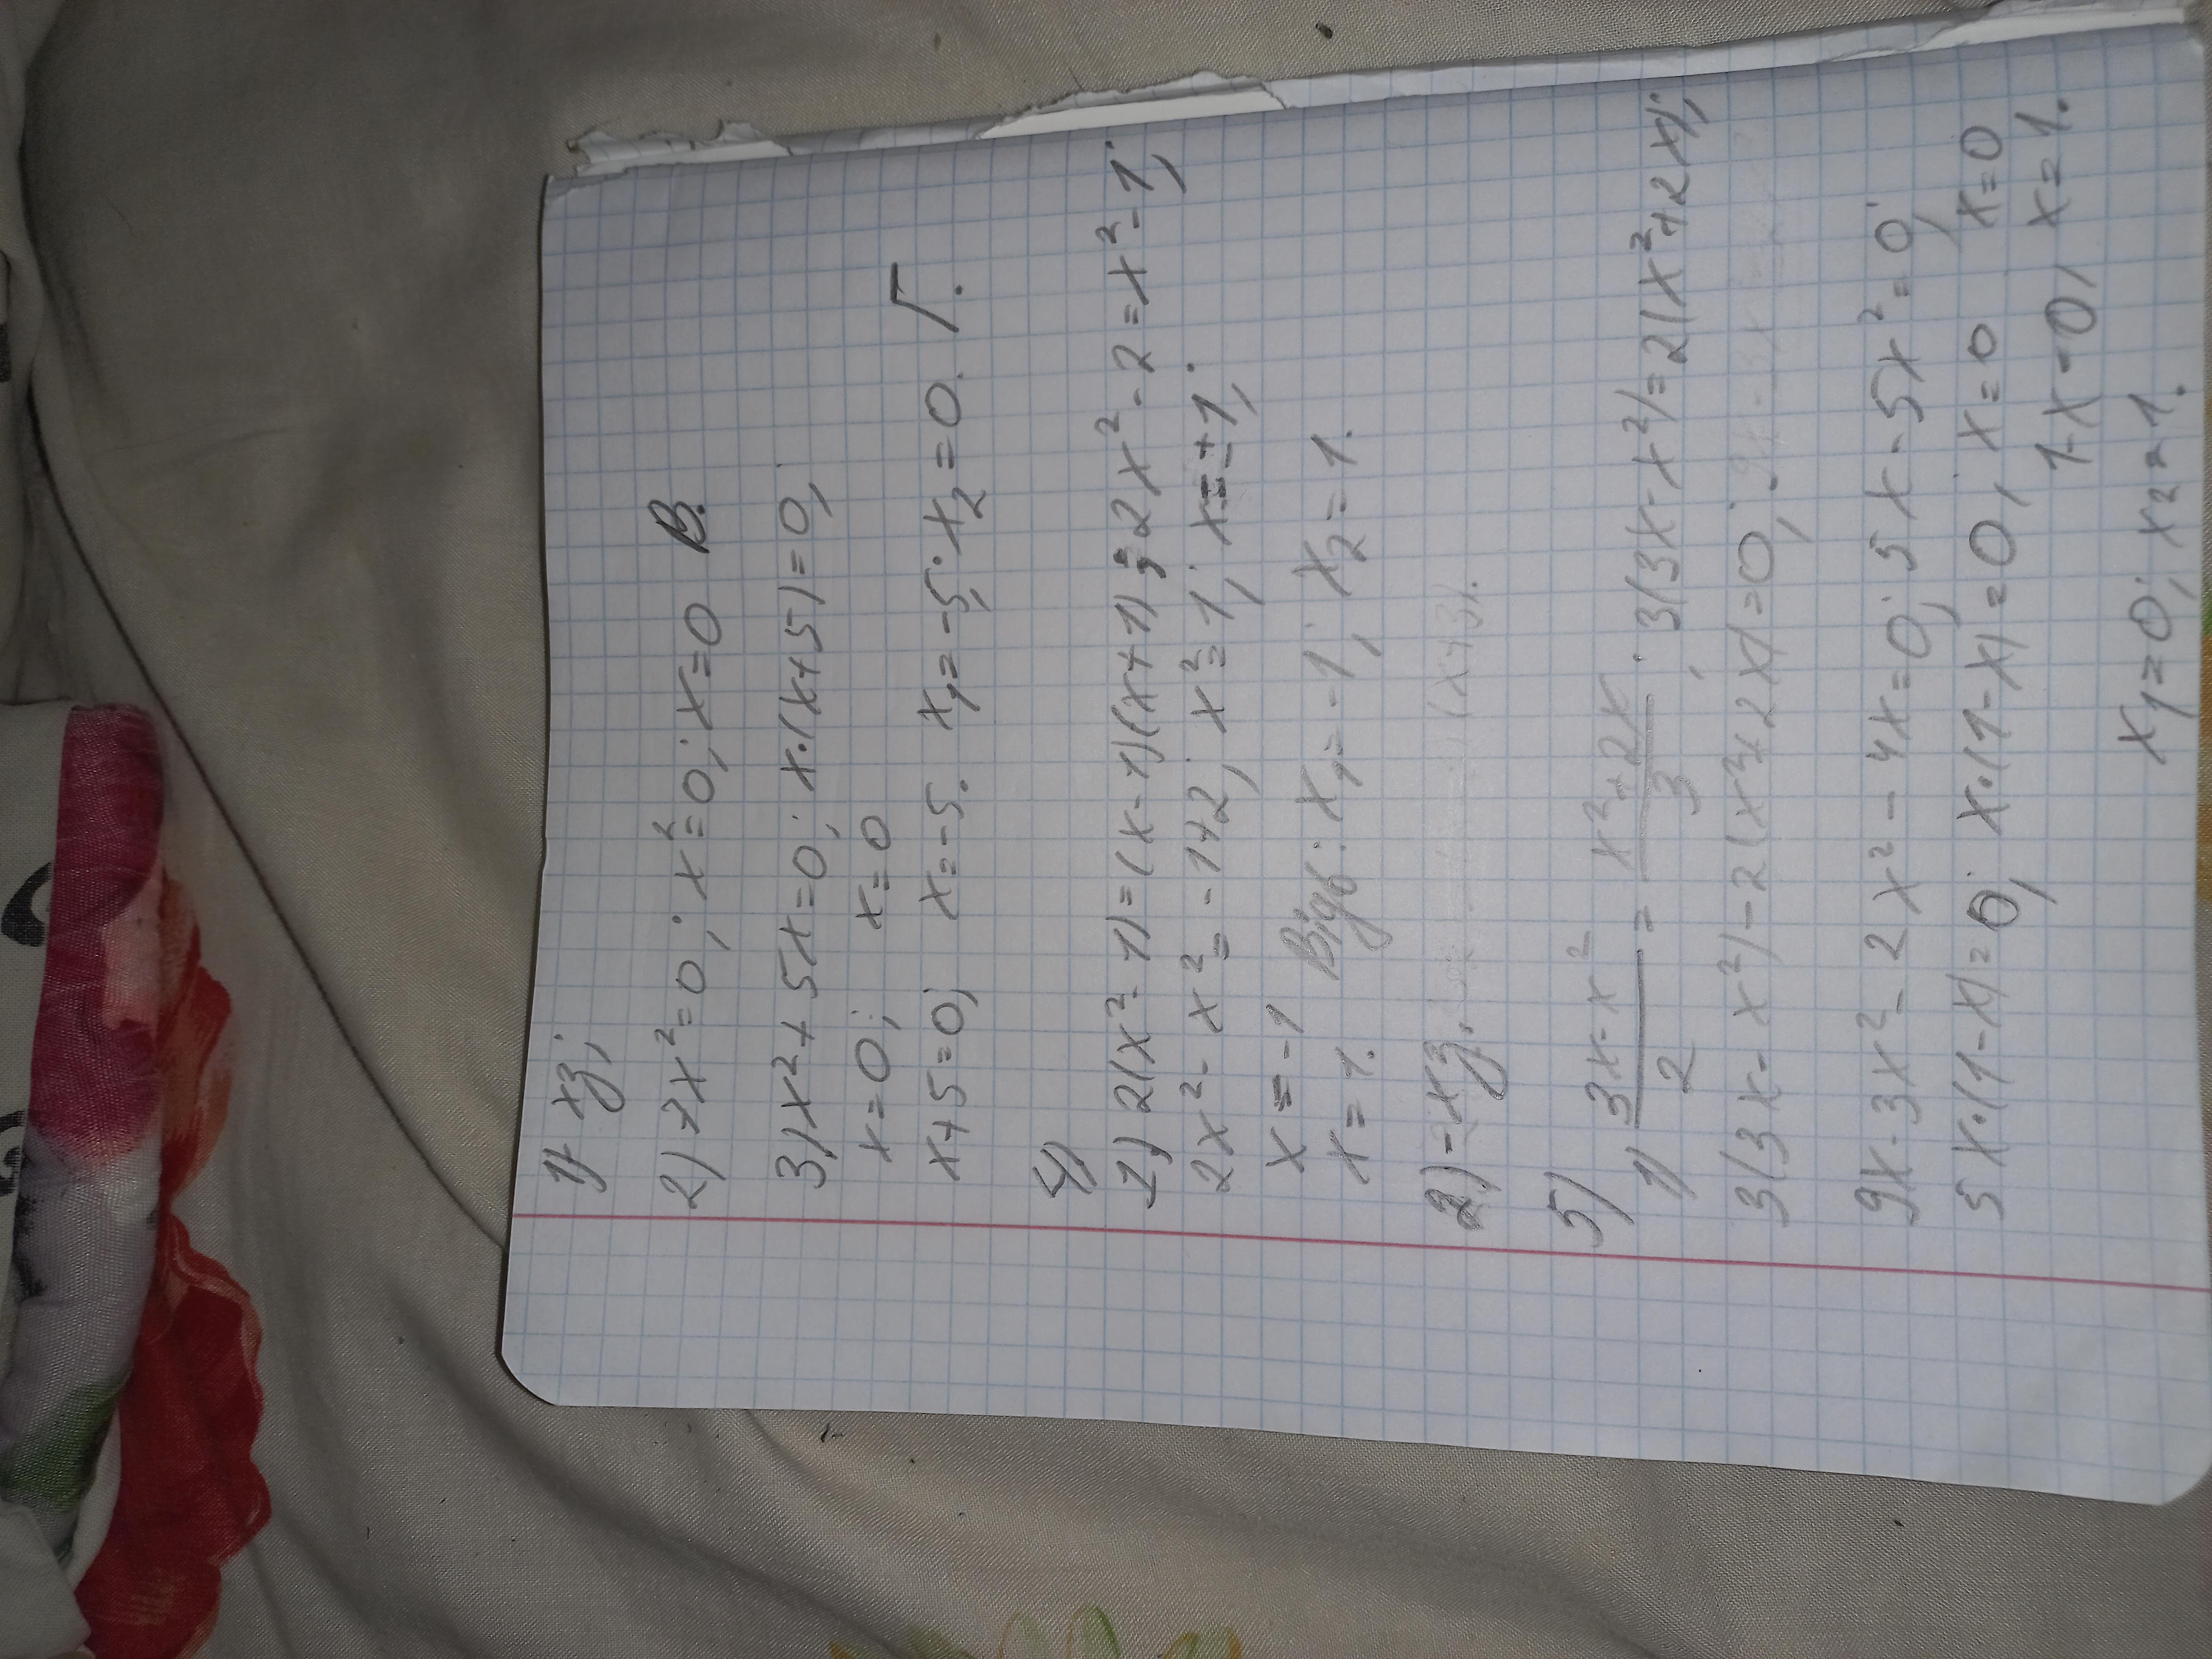 1) хз;
2) 7x²=0; x²=0; x=0 В.
3) x²+5x=0; x·(x+5)=0;
x=0; x=0
x+5=0; x=-5. x₁=-5; x₂=0. Г.
4)
1) 2(x²-1)=(x-1)(x+1); 2x²-2=x²-1;
2x²-x²=-1+2; x²=1; x=±1;
x=-1
x=1. Відб: x₁=-1; x₂=1.
2) -хз.
5)
1) (3x-x²)/2 = (x²+2x)/3; 3(3x-x²)=2(x²+2x);
3(3x-x²)-2(x²+2x)=0;
9x-3x²-2x²-4x=0; 5x-5x²=0;
5x·(1-x)=0; x·(1-x)=0; x=0 x=0
1-x=0; x=1.
x₁=0; x₂=1.